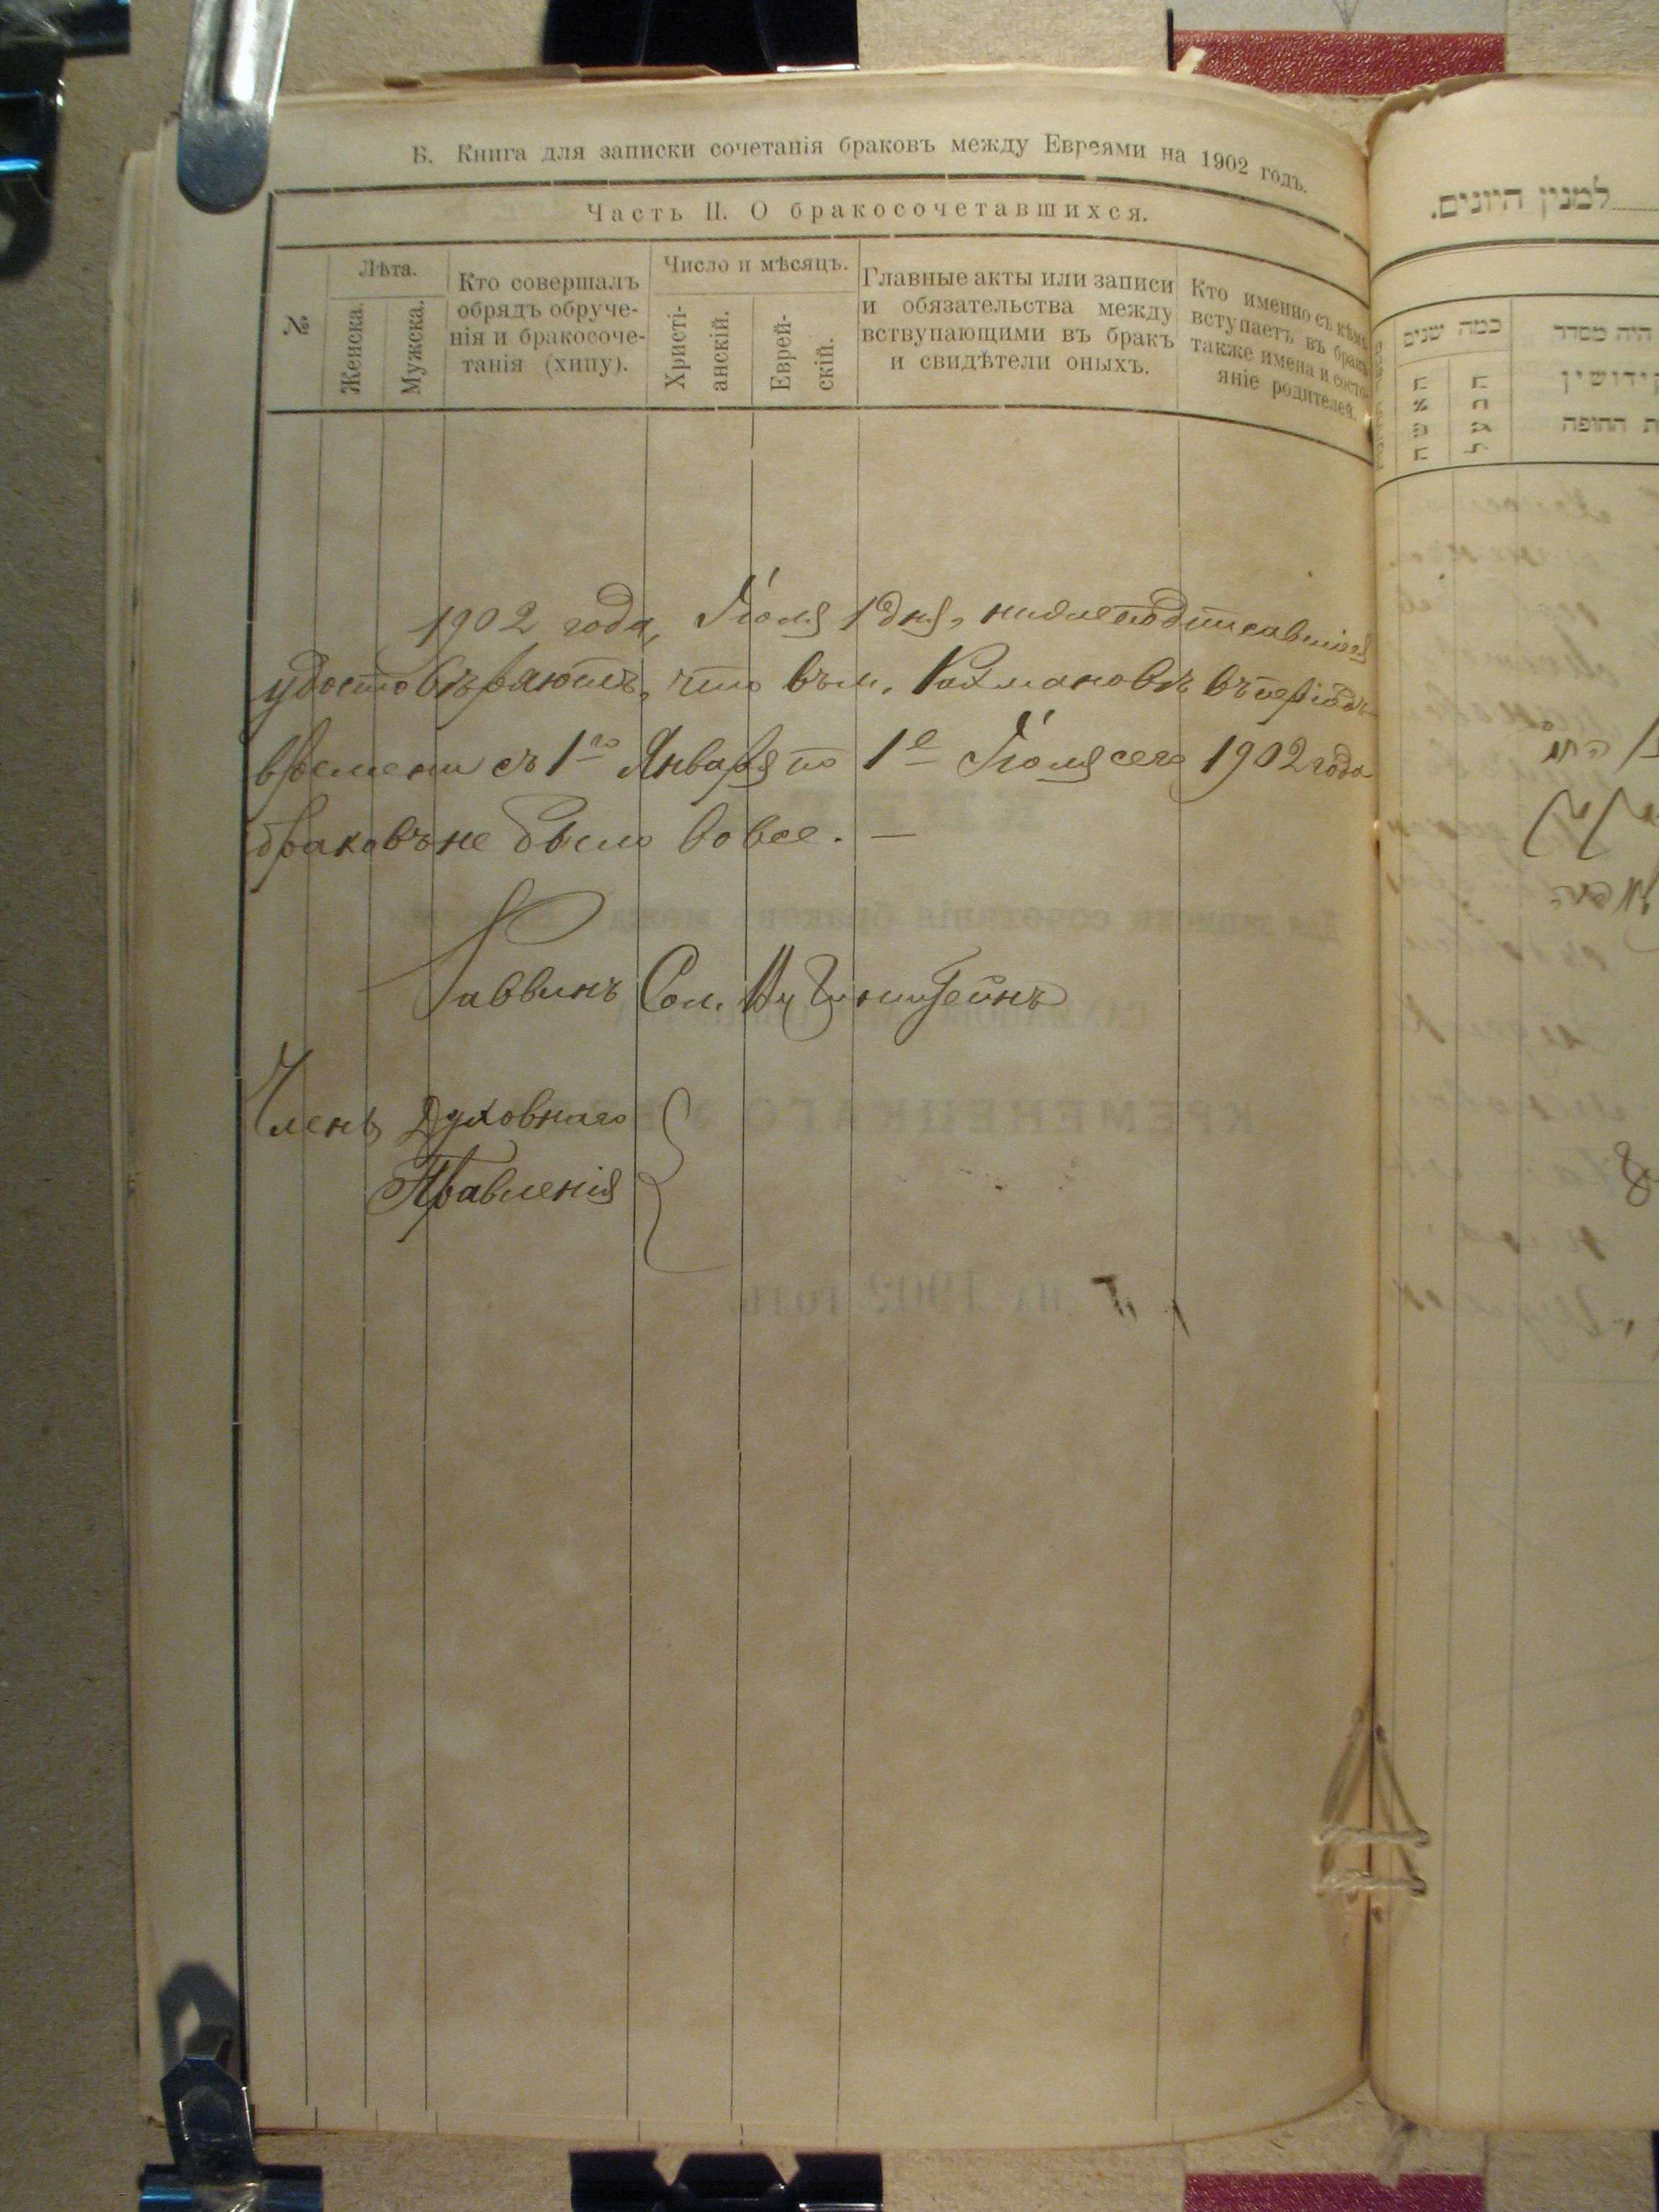 Б. Книга для записки сочетанія браковъ между Евреями на 1902 годъ.
Часть II. О бракосочетавшихся.
№
Лѣта.
Женска.
Мужска.
Кто совершалъ
обрядъ обруче-
нія и бракосоче-
танія (хипу).
Число и мѣсяцъ.
Христі-
анскій.
Еврей-
скій.
Главные акты или записи
и обязательства между
вствупающими въ бракъ
и свидѣтели оныхъ.
Кто именно съ кѣмъ
вступаетъ въ бракъ
также имена и состо-
яніе родителей.
1902 года, Іюля 1 дня, нижеподписавшіеся
удостовѣряютъ, что въ м. Рахмановѣ въ періодъ
времени съ 1го Января по 1е Іюля сего 1902 года
браковъ не было вовсе. —
Раввинъ Сол.
Членъ Духовнаго
Правленія
למנין היונים.
כמה שנים
האשה
הגל
היה מסדר
קידושין
החופה